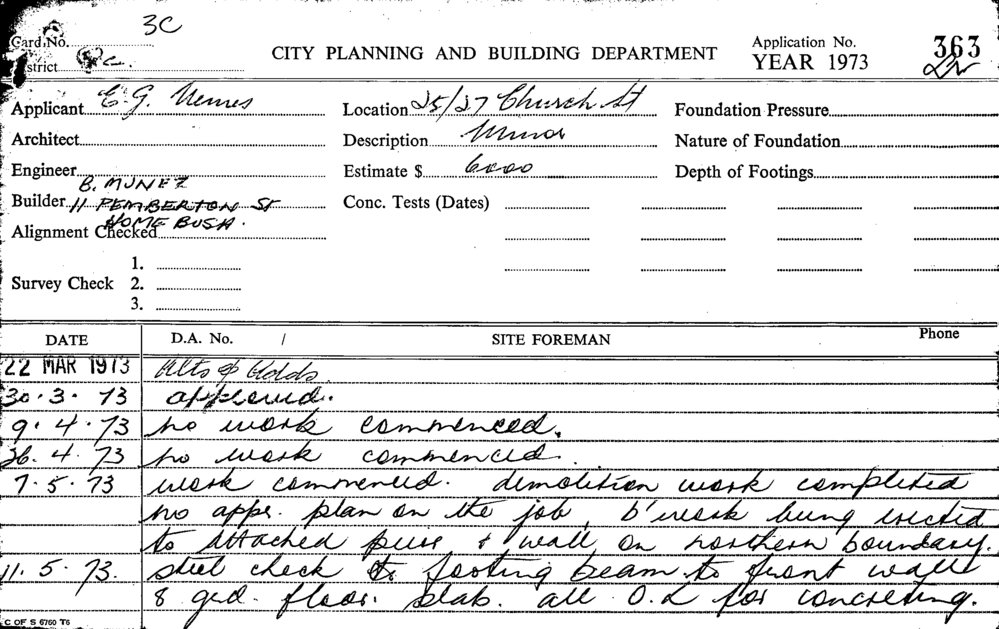 3C
Card No.
District
CITY PLANNING AND BUILDING DEPARTMENT
Application No. 363
YEAR 1973
Applicant E. G. Nemes
Location 25/27 Church St
Foundation Pressure
Architect
Description Minor
Nature of Foundation
Engineer
Estimate $ 6000
Depth of Footings
B. MUNEZ
Builder 11 PEMBERTON St
Conc. Tests (Dates)
HOME BUSH.
Alignment Checked
1.
Survey Check 2.
3.
DATE D.A. No. / SITE FOREMAN Phone
22 MAR 1973 Alts & Adds.
30.3.73 approved.
9.4.73 no work commenced.
26.4.73 no work commenced.
7.5.73 work commenced. demolition work completed
no appr. plan on the job, b'work being erected
to attached piers & wall on northern boundary.
11.5.73. steel check to footing beam to front wall
& grd. floor. slab. all O.K for concreting.
C OF S 6760 T6